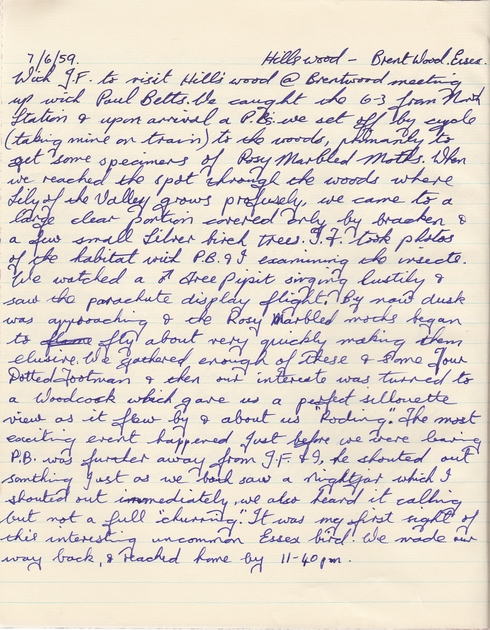 7/6/59. Hill's wood - Brent Wood. Essex.
With J.F. to visit Hill's wood @ Brentwood meeting
up with Paul Betts. We caught the 6-3 from North
Station & upon arrival a P.B's we set off by cycle
(taking mine on train) to the woods, primarily to
get some specimens of Rosy Marbled Moths. When
we reached the spot through the woods where
Lily of the Valley grows profusely, we came to a
large clear portion covered only by bracken &
a few small Silver birch trees. J.F. took photos
of the habitat with P.B. & I examining the insects.
We watched a Tree Pipit singing lustily &
saw the parachute display flight. By now dusk
was approaching & the Rosy Marbled moths began
to fly about very quickly making them
elusive. We gathered enough of these & some Four
Dotted Footman & then our interests was turned to
a Woodcock which gave us a perfect sillouette
view as it flew by & about us "Roding". The most
exciting event happened just before we were leaving
P.B. was further away from J.F. & I, he shouted out
somthing just as we both saw a nightjar which I
shouted out immediately, we also heard it calling
but not a full "churring". It was my first sight of
this interesting uncommon Essex bird. We made our
way back, & reached home by 11-40 pm.